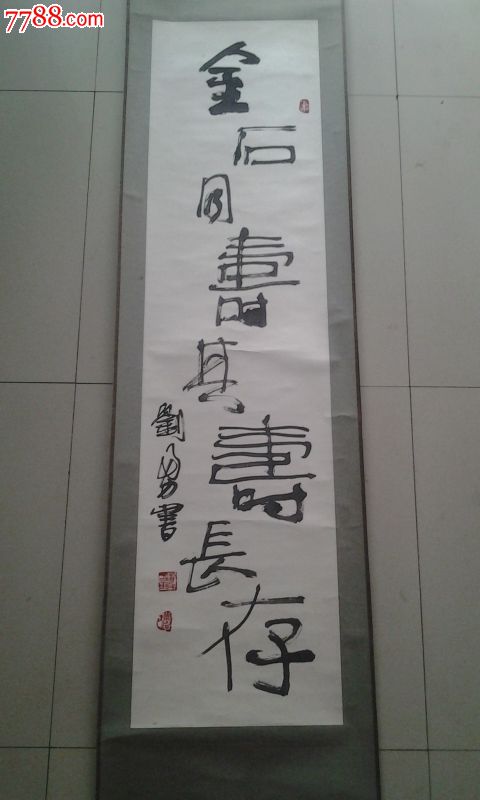 7788.com
金石同壽其壽長存
劉勇書